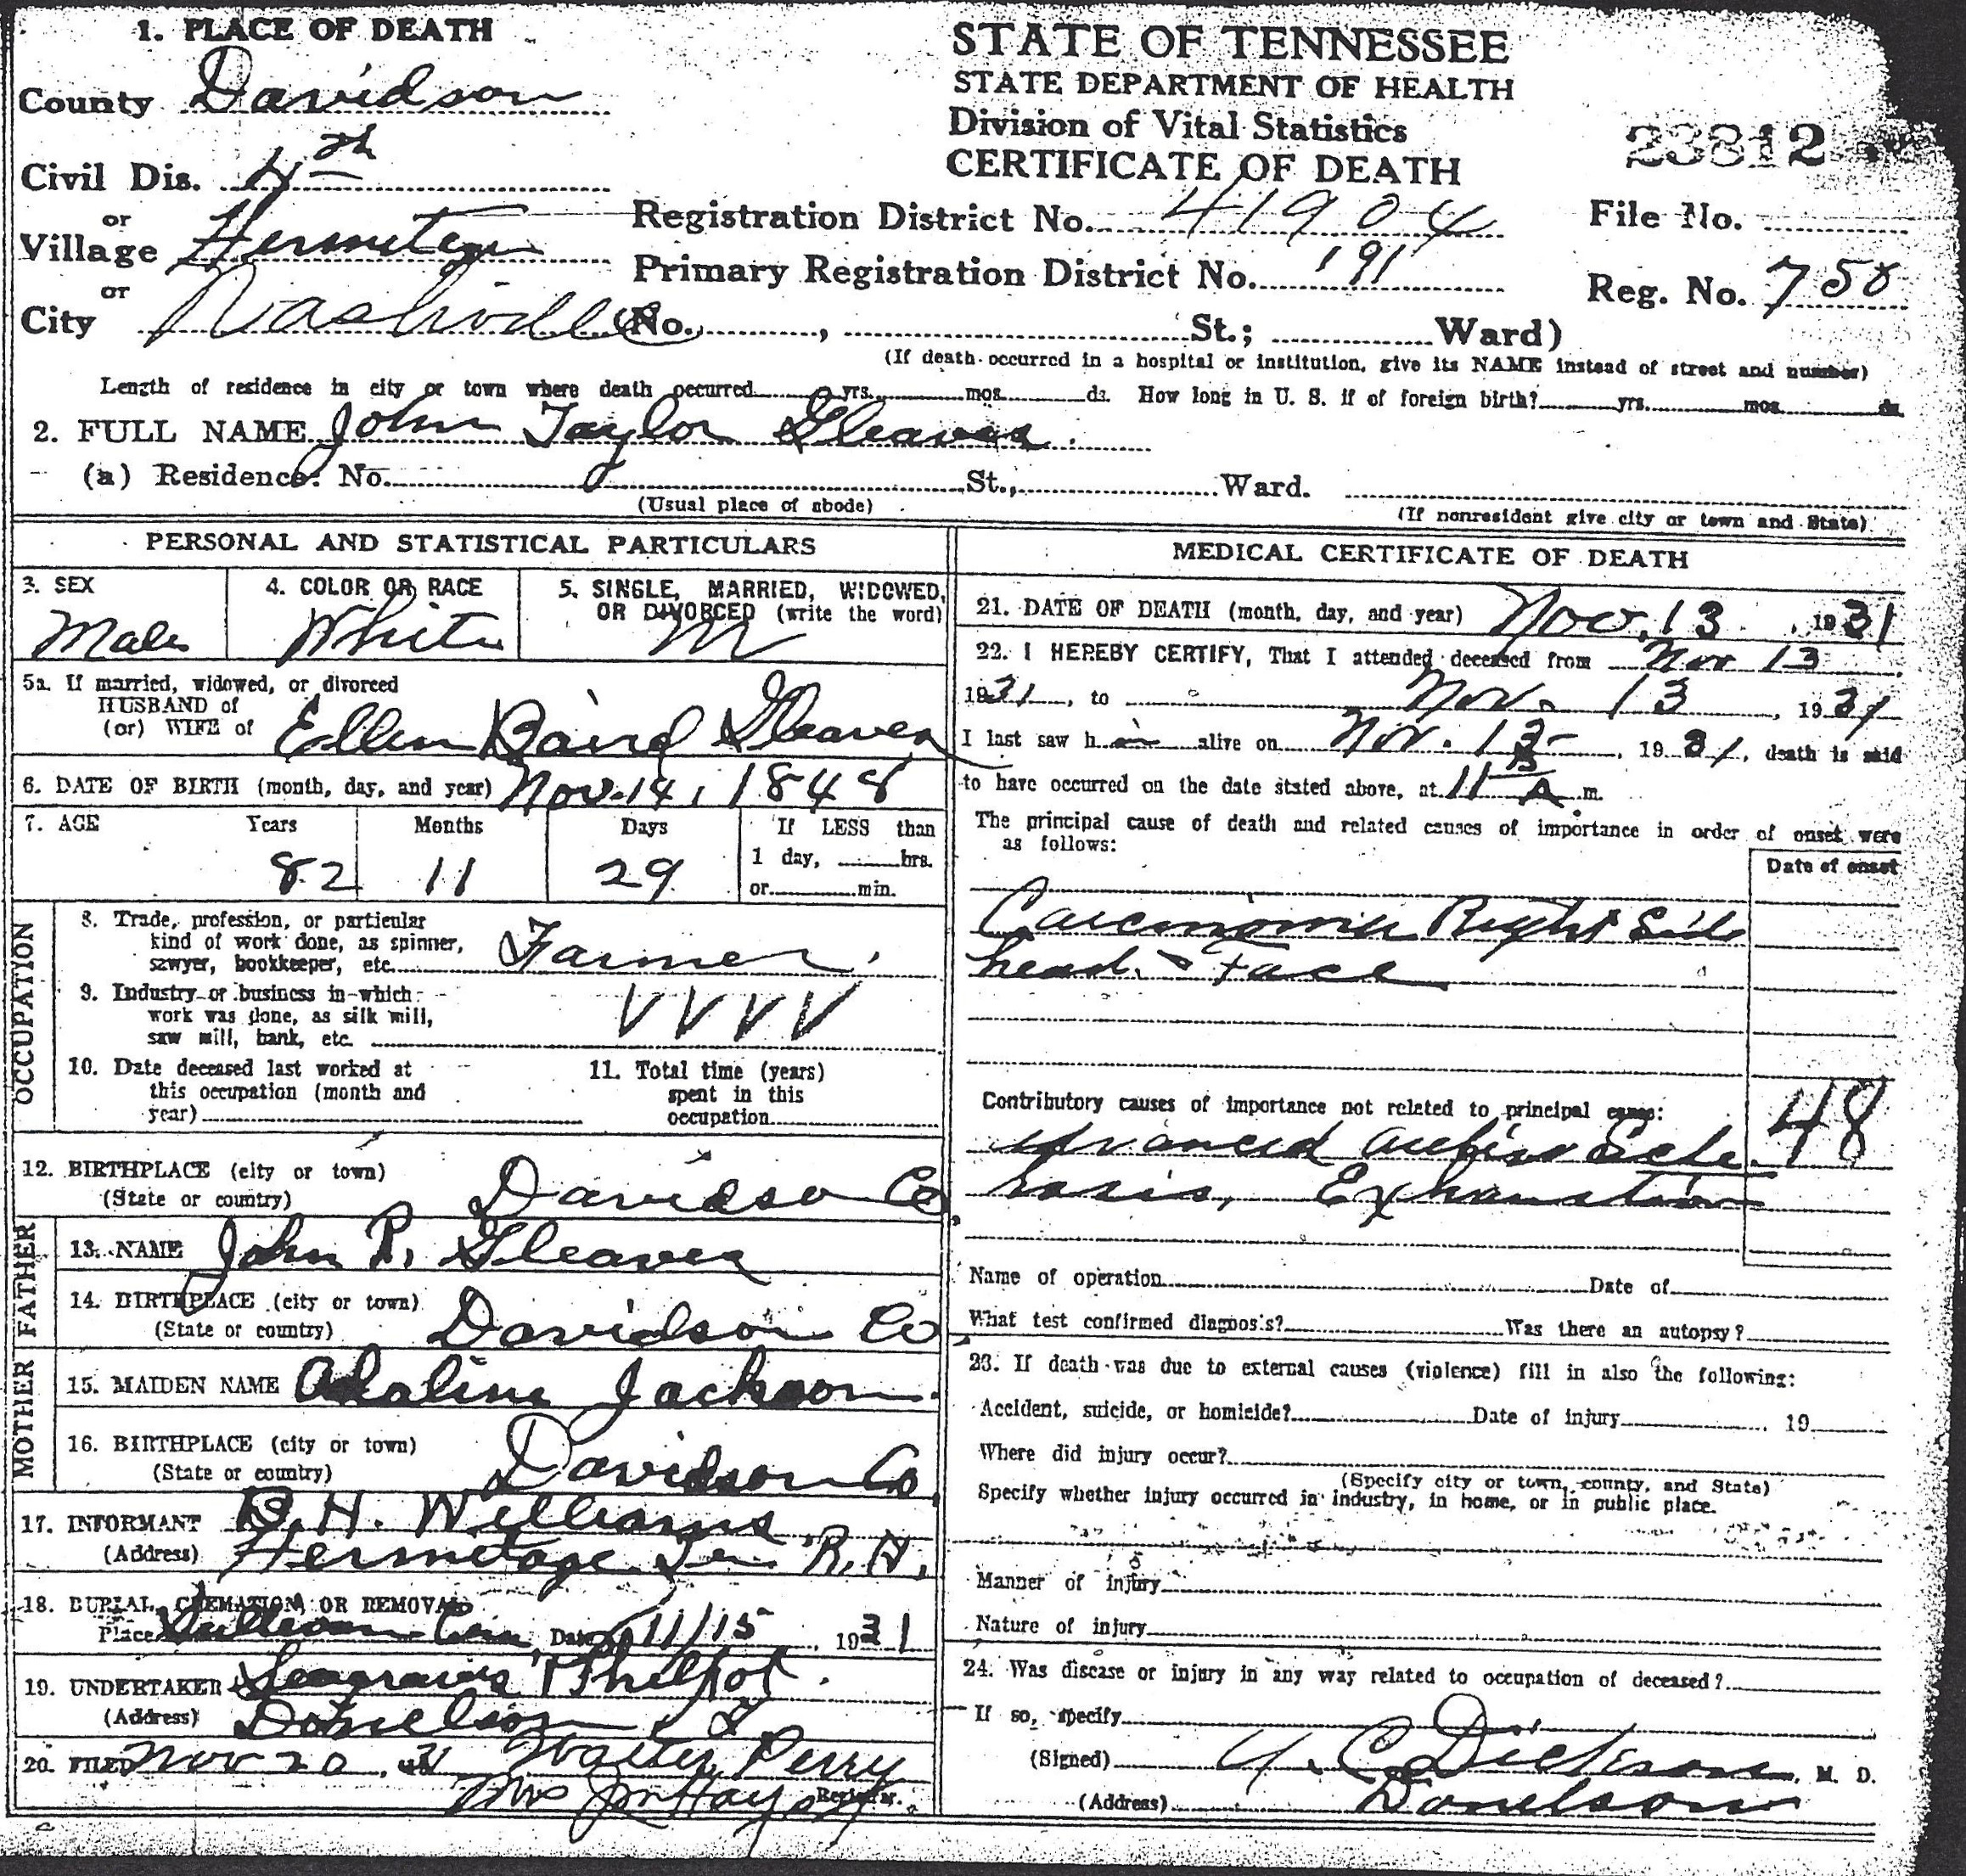 1. PLACE OF DEATH
County Davidson
Civil Dis. 4th
or
Village Hermitage
or
City Nashville
STATE OF TENNESSEE
STATE DEPARTMENT OF HEALTH
Division of Vital Statistics
CERTIFICATE OF DEATH
23812
Registration District No. 41904
File No.
Primary Registration District No. 191
Reg. No. 758
(No. , St.; Ward)
(If death occurred in a hospital or institution, give its NAME instead of street and number)
Length of residence in city or town where death occurred yrs. mos. ds. How long in U. S. if of foreign birth? yrs. mos. ds.
2. FULL NAME John Taylor Gleaves.
(a) Residence: No. St., Ward.
(Usual place of abode) (If nonresident give city or town and State)
PERSONAL AND STATISTICAL PARTICULARS
3. SEX
Male
4. COLOR OR RACE
White
5. SINGLE, MARRIED, WIDOWED,
OR DIVORCED (write the word)
M
5a. If married, widowed, or divorced
HUSBAND of
(or) WIFE of Ellen Baird Gleaves
6. DATE OF BIRTH (month, day, and year) Nov. 14, 1848
7. AGE Years Months Days If LESS than
1 day, hrs.
or min.
82 11 29
OCCUPATION
8. Trade, profession, or particular
kind of work done, as spinner,
sawyer, bookkeeper, etc. Farmer.
9. Industry or business in which
work was done, as silk mill,
saw mill, bank, etc. VVVV
10. Date deceased last worked at
this occupation (month and
year)
11. Total time (years)
spent in this
occupation
12. BIRTHPLACE (city or town)
(State or country) Davidso Co.
FATHER
13. NAME John P. Gleaves
14. BIRTHPLACE (city or town)
(State or country) Davidson Co.
MOTHER
15. MAIDEN NAME Adaline Jackson.
16. BIRTHPLACE (city or town)
(State or country) Davidson Co.
17. INFORMANT B. H. Williams
(Address) Hermitage Ten R. H.
18. BURIAL, CREMATION, OR REMOVAL
Place Date 11/15, 1931
19. UNDERTAKER Seagraves Philpot.
(Address) Donelson, T
20. FILED Nov 20, 31 Walter Perry
Mrs Hays
Registrar.
MEDICAL CERTIFICATE OF DEATH
21. DATE OF DEATH (month, day, and year) Nov. 13, 1931
22. I HEREBY CERTIFY, That I attended deceased from Nov 13
1931, to Nov. 13, 1931
I last saw him alive on Nov. 13, 1931, death is said
to have occurred on the date stated above, at 11 A m.
The principal cause of death and related causes of importance in order of onset were
as follows:
Date of onset
Carcinoma Right Side
head & Face
Contributory causes of importance not related to principal cause:
48
Advanced Arterio Scle
rosis, Exhaustion
Name of operation Date of
What test confirmed diagnosis? Was there an autopsy?
23. If death was due to external causes (violence) fill in also the following:
Accident, suicide, or homicide? Date of injury , 19
Where did injury occur?
(Specify city or town, county, and State)
Specify whether injury occurred in industry, in home, or in public place.
Manner of injury
Nature of injury
24. Was disease or injury in any way related to occupation of deceased?
If so, specify
(Signed) C Dickson, M. D.
(Address) Donelson